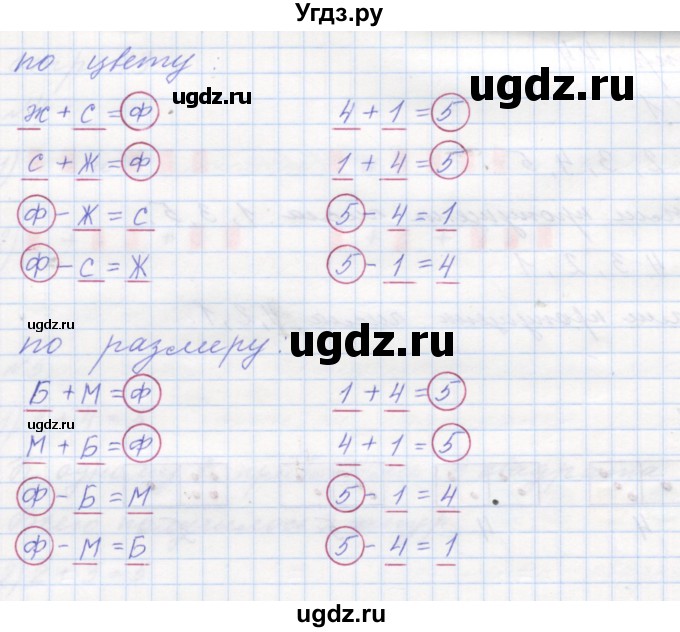 Угдз.ру
по цвету:
ж + с = ф 4 + 1 = 5
с + ж = ф 1 + 4 = 5
ф - ж = с 5 - 4 = 1
ф - с = ж 5 - 1 = 4
по размеру:
Б + М = ф 1 + 4 = 5
М + Б = ф 4 + 1 = 5
ф - Б = М 5 - 1 = 4
ф - М = Б 5 - 4 = 1
ugdz.ru
ugdz.ru
ugdz.ru
ugdz.ru
ugdz.ru
ugdz.ru
ugdz.ru
ugdz.ru